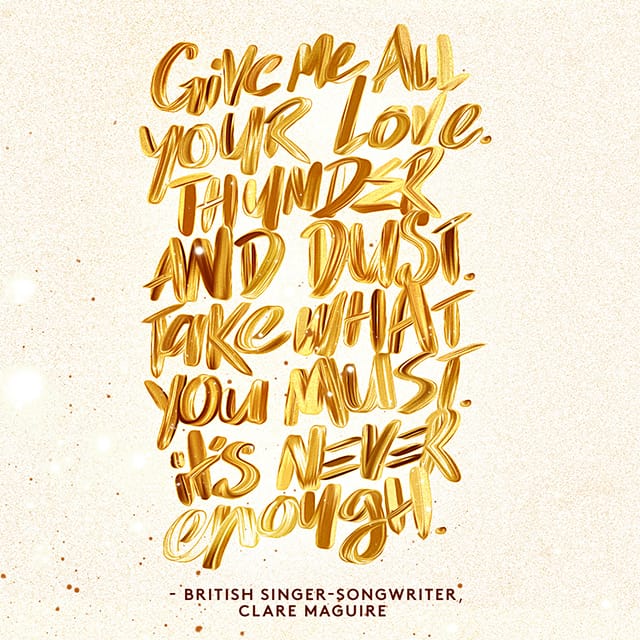 GiVe Me ALL
YOUR LOVe.
THUNDER
AND DUST.
TAKe WHAT
YOU MUST.
it's NEVER
enough.
- BRITISH SINGER-SONGWRITER,
CLARE MAGUIRE